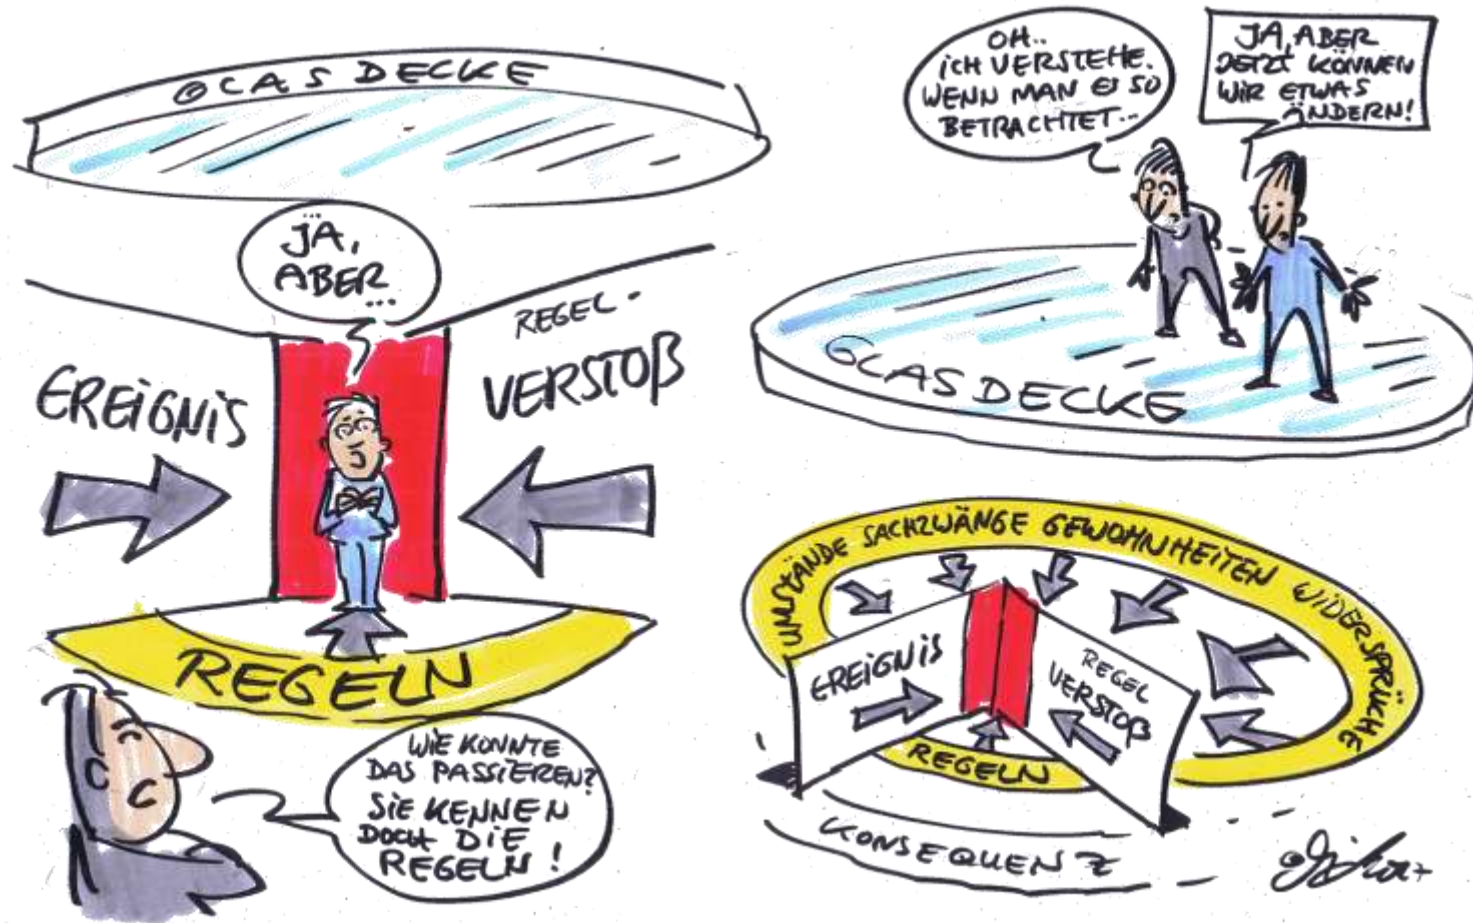 GLASDECKE
JA,
ABER
...
EREIGNIS
REGEL-
VERSTOß
REGELN
WIE KONNTE
DAS PASSIEREN?
SIE KENNEN
DOCH DIE
REGELN!
OH..
ICH VERSTEHE.
WENN MAN ES SO
BETRACHTET...
JA, ABER
JETZT KÖNNEN
WIR ETWAS
ÄNDERN!
GLASDECKE
UMSTÄNDE SACHZWÄNGE GEWOHNHEITEN WIDERSPRÜCHE
EREIGNIS
REGEL
VERSTOß
REGELN
KONSEQUENZ